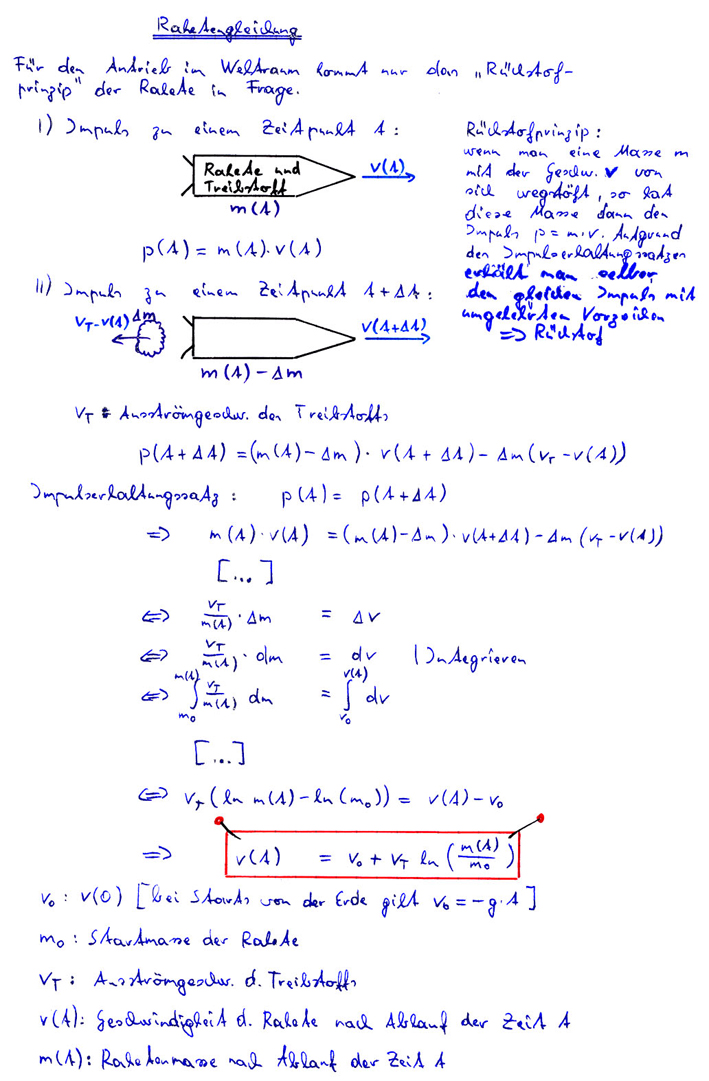 Raketengleichung
Für den Antrieb im Weltraum kommt nur das „Rückstoß-
prinzip" der Rakete in Frage.
I) Impuls zu einem Zeitpunkt t:
Rakete und
Treibstoff
v(t)
m(t)
p(t) = m(t)·v(t)
Rückstoßprinzip:
wenn man eine Masse m
mit der Geschw. v von
sich wegstößt, so hat
diese Masse dann den
Impuls p = m·v. Aufgrund
des Impulserhaltungssatzes
erhält man selber
den gleichen Impuls mit
umgekehrten Vorzeichen
=> Rückstoß
II) Impuls zu einem Zeitpunkt t+Δt:
v_T-v(t) Δm
v(t+Δt)
m(t) - Δm
v_T = Ausströmgeschw. des Treibstoffs
p(t+Δt) = (m(t) - Δm) · v(t+Δt) - Δm(v_T - v(t))
Impulserhaltungssatz: p(t) = p(t+Δt)
=> m(t)·v(t) = (m(t)-Δm)·v(t+Δt) - Δm (v_T - v(t))
[...]
<=> v_T/m(t) · Δm = Δv
<=> v_T/m(t) · dm = dv | Integrieren
<=> ∫_{m_0}^{m(t)} v_T/m(t) dm = ∫_{v_0}^{v(t)} dv
[...]
<=> v_T (ln m(t) - ln(m_0)) = v(t) - v_0
=> v(t) = v_0 + v_T ln (m(t)/m_0)
v_0: v(0) [bei Starts von der Erde gilt v_0 = -g·t]
m_0: Startmasse der Rakete
v_T: Ausströmgeschw. d. Treibstoffs
v(t): Geschwindigkeit d. Rakete nach Ablauf der Zeit t
m(t): Raketenmasse nach Ablauf der Zeit t